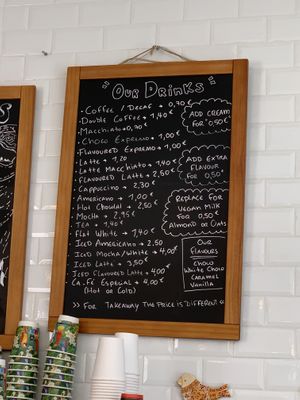 "Our Drinks"
• Coffee / Decaf → 0,70€
• Double Coffee → 1,40€
• Macchiato → 0,70€
• Choco Expresso → 1,00€
• Flavoured Expresso → 1,00€
• Latte → 1,20
• Latte Macchiato → 1,40€
• Flavoured Latte → 2,50€
• Cappuccino → 2,30€
• Americano → 1,00€
• Hot Chocolat → 2,50€
• Mocha → 2,95€
• Tea → 1,40€
• Flat White → 1,40€
• Iced Americano → 2,50
• Iced Mocha/White → 4,00€
• Iced Latte → 3,50€
• Iced Flavoured Latte → 4,00€
• Ca.fé Especial → 4,00€
(Hot or Cold)
>> For Takeaway the price is different <<
Add Cream
For 0,50€
Add Extra
Flavour
For 0,50€
Replace for
Vegan Milk
For 0,50€
Almond or Oats
Our
Flavours
Choco
White Choco
Caramel
Vanilla